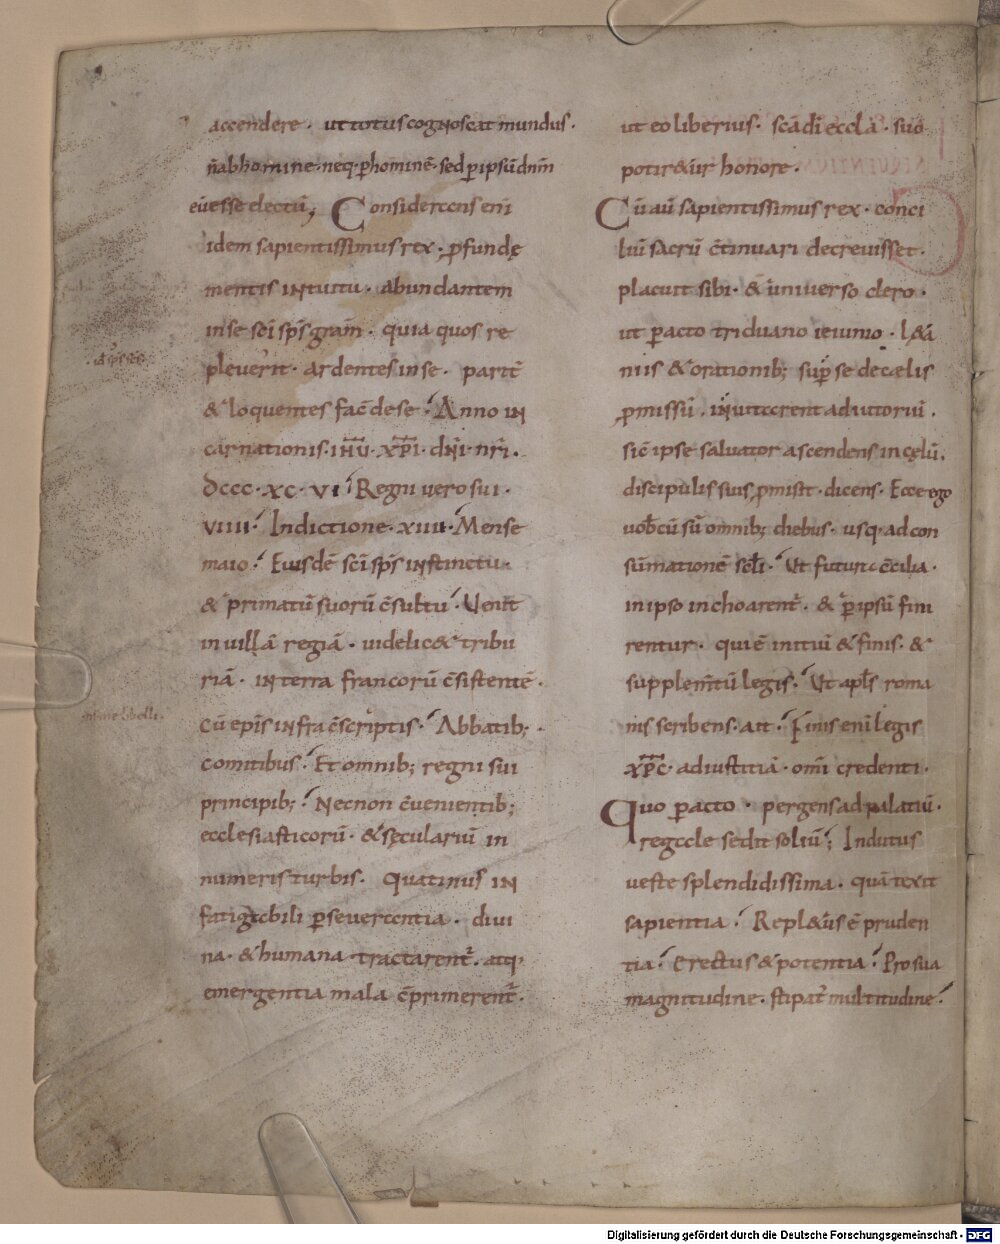 accendere · ut totus cognoscat mundus ·
n̄ ab homine · neq· ꝑ hominē · sed ꝑ ipsū dn̄m
eū esse electū; Considerans eni̅
idem sapientissimus rex · ꝓfundę
mentis intuitu · abundantem
in se sc̄i sp̄s gra̅m · quia quos re
pleverit · ardentes in se · parit̄
& loquentes fac̄ de se · Anno in
carnationis · ih̅u · xp̅i · dn̅i · nr̅i ·
dccc · xc · vi · Regni vero sui ·
viiii · Indictione · xiiii · Mense
maio · Eiusdē sc̄i sp̄s instinctu ·
& primatū suorū c̄sultu · Venit
in villā regiā · videlic& tribu
riā · in terra francorū c̄sistentē ·
cū ep̄is infra c̄scriptis · Abbatib; ·
comitibus · Et omnib; regni sui
principib; · Necnon c̄venientib;
ecclesiasticorū · & sęculariū in
numeris turbis · Quatinus in
fatigabili ꝑseverantia · divi
na · & humana tractarent̄ · atq·
emergentia mala c̄primerent̄ ·
ut eo liberius · sc̄a dī eccl̄a · suo
potir&ur honore ·
Cū aū sapientissimus rex · conci
liū sacrū c̄tinuari decrevisset ·
placuit sibi · & universo clero ·
ut ꝑacto triduano ieiunio · l&a
niis & orationib; sup̄ se de cælis
ꝓmissū · invitarent adiutoriū ·
sic̄ ipse salvator ascendens in cęlū ·
discipulis suis ꝓmisit · dicens · Ecce ego
vob̄cū sū omnib; diebus · usq· ad con
sūmationē sc̄l̄i · Ut futura c̄cilia ·
in ipso inchoarent̄ · & ꝑ ipsū fini
rentur · qui ē initiū & finis · &
supplem̄tū legis · Ut apl̄s roma
nis scribens · ait · Finis eni̅ legis
xp̅c · ad iustitiā · omi̅ credenti ·
Quo ꝑacto · pergens ad palatiū ·
regale sedit soliū; Indutus
veste splendidissima · quā texit
sapientia · Repl&us ē pruden
tia · Erectus & potentia · Pro sua
magnitudine · stipat̄ multitudine ·
Digitalisierung gefördert durch die Deutsche Forschungsgemeinschaft - DFG